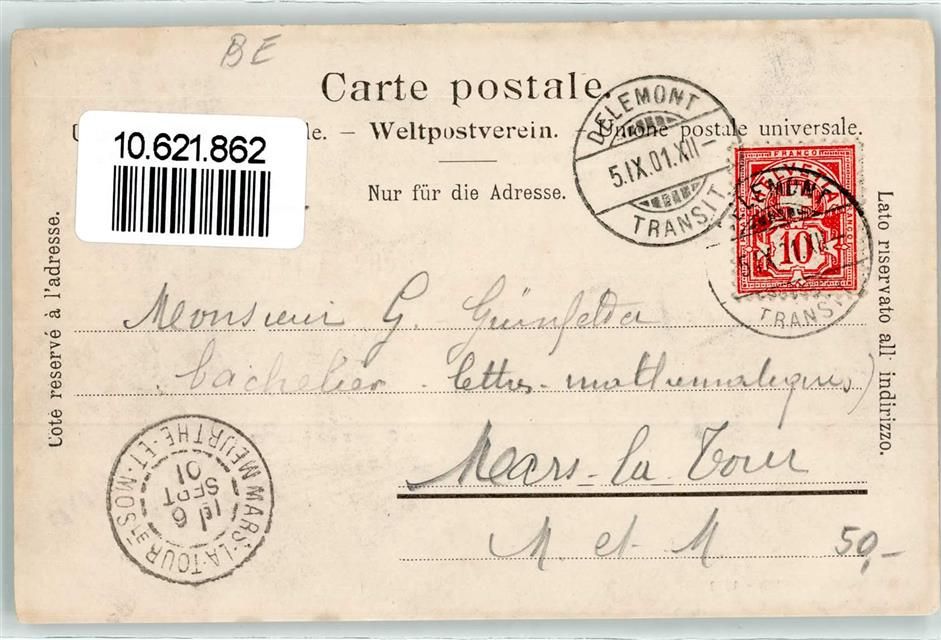 BE
Carte postale.
10.621.862
Weltpostverein. – Unione postale universale.
Nur für die Adresse.
Côte reservé à l'adresse.
Lato riservato all' indirizzo.
DELEMONT
5.IX.01.XII–
TRANSIT
FRANCO
HELVETIA
10
TRANSIT
Monsieur G. Grünfelder
bachelier - lettres - mathématiques)
Mars-la Tour
M et M
50,-
MARS-LA-TOUR
MEURTHE-ET-MOSELLE
6
SEPT
01